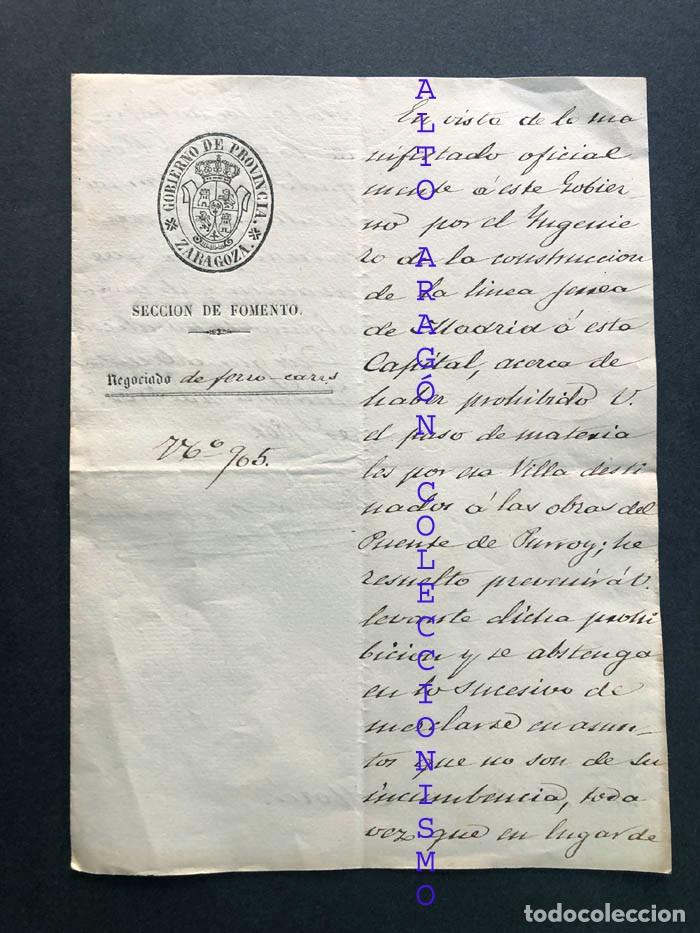 GOBIERNO DE PROVINCIA.
ZARAGOZA.
SECCION DE FOMENTO.
Negociado de ferro-carrs
Nº 965.
En vista de lo ma
nifestado oficial
mente á este Gobier
no por el Yngenie
ro de la construccion
de la linea ferrea
de Madrid á esta
Capital, acerca de
haber prohibido V.
el paso de materia
les por esa Villa desti
nados á las obras del
Puente de Purroy; he
resuelto prevenir á V.
levante dicha prohi
bicion y se abstenga
en lo sucesivo de
mezclarse en asun-
tos que no son de su
incumbencia, toda
vez que en lugar de
ALTO ARAGÓN COLECCIONISMO
todocoleccion